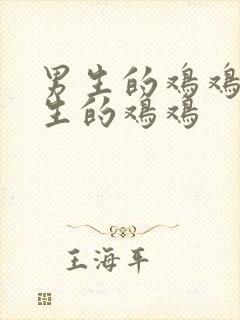 男生的鸡鸡
生的鸡鸡
王海平